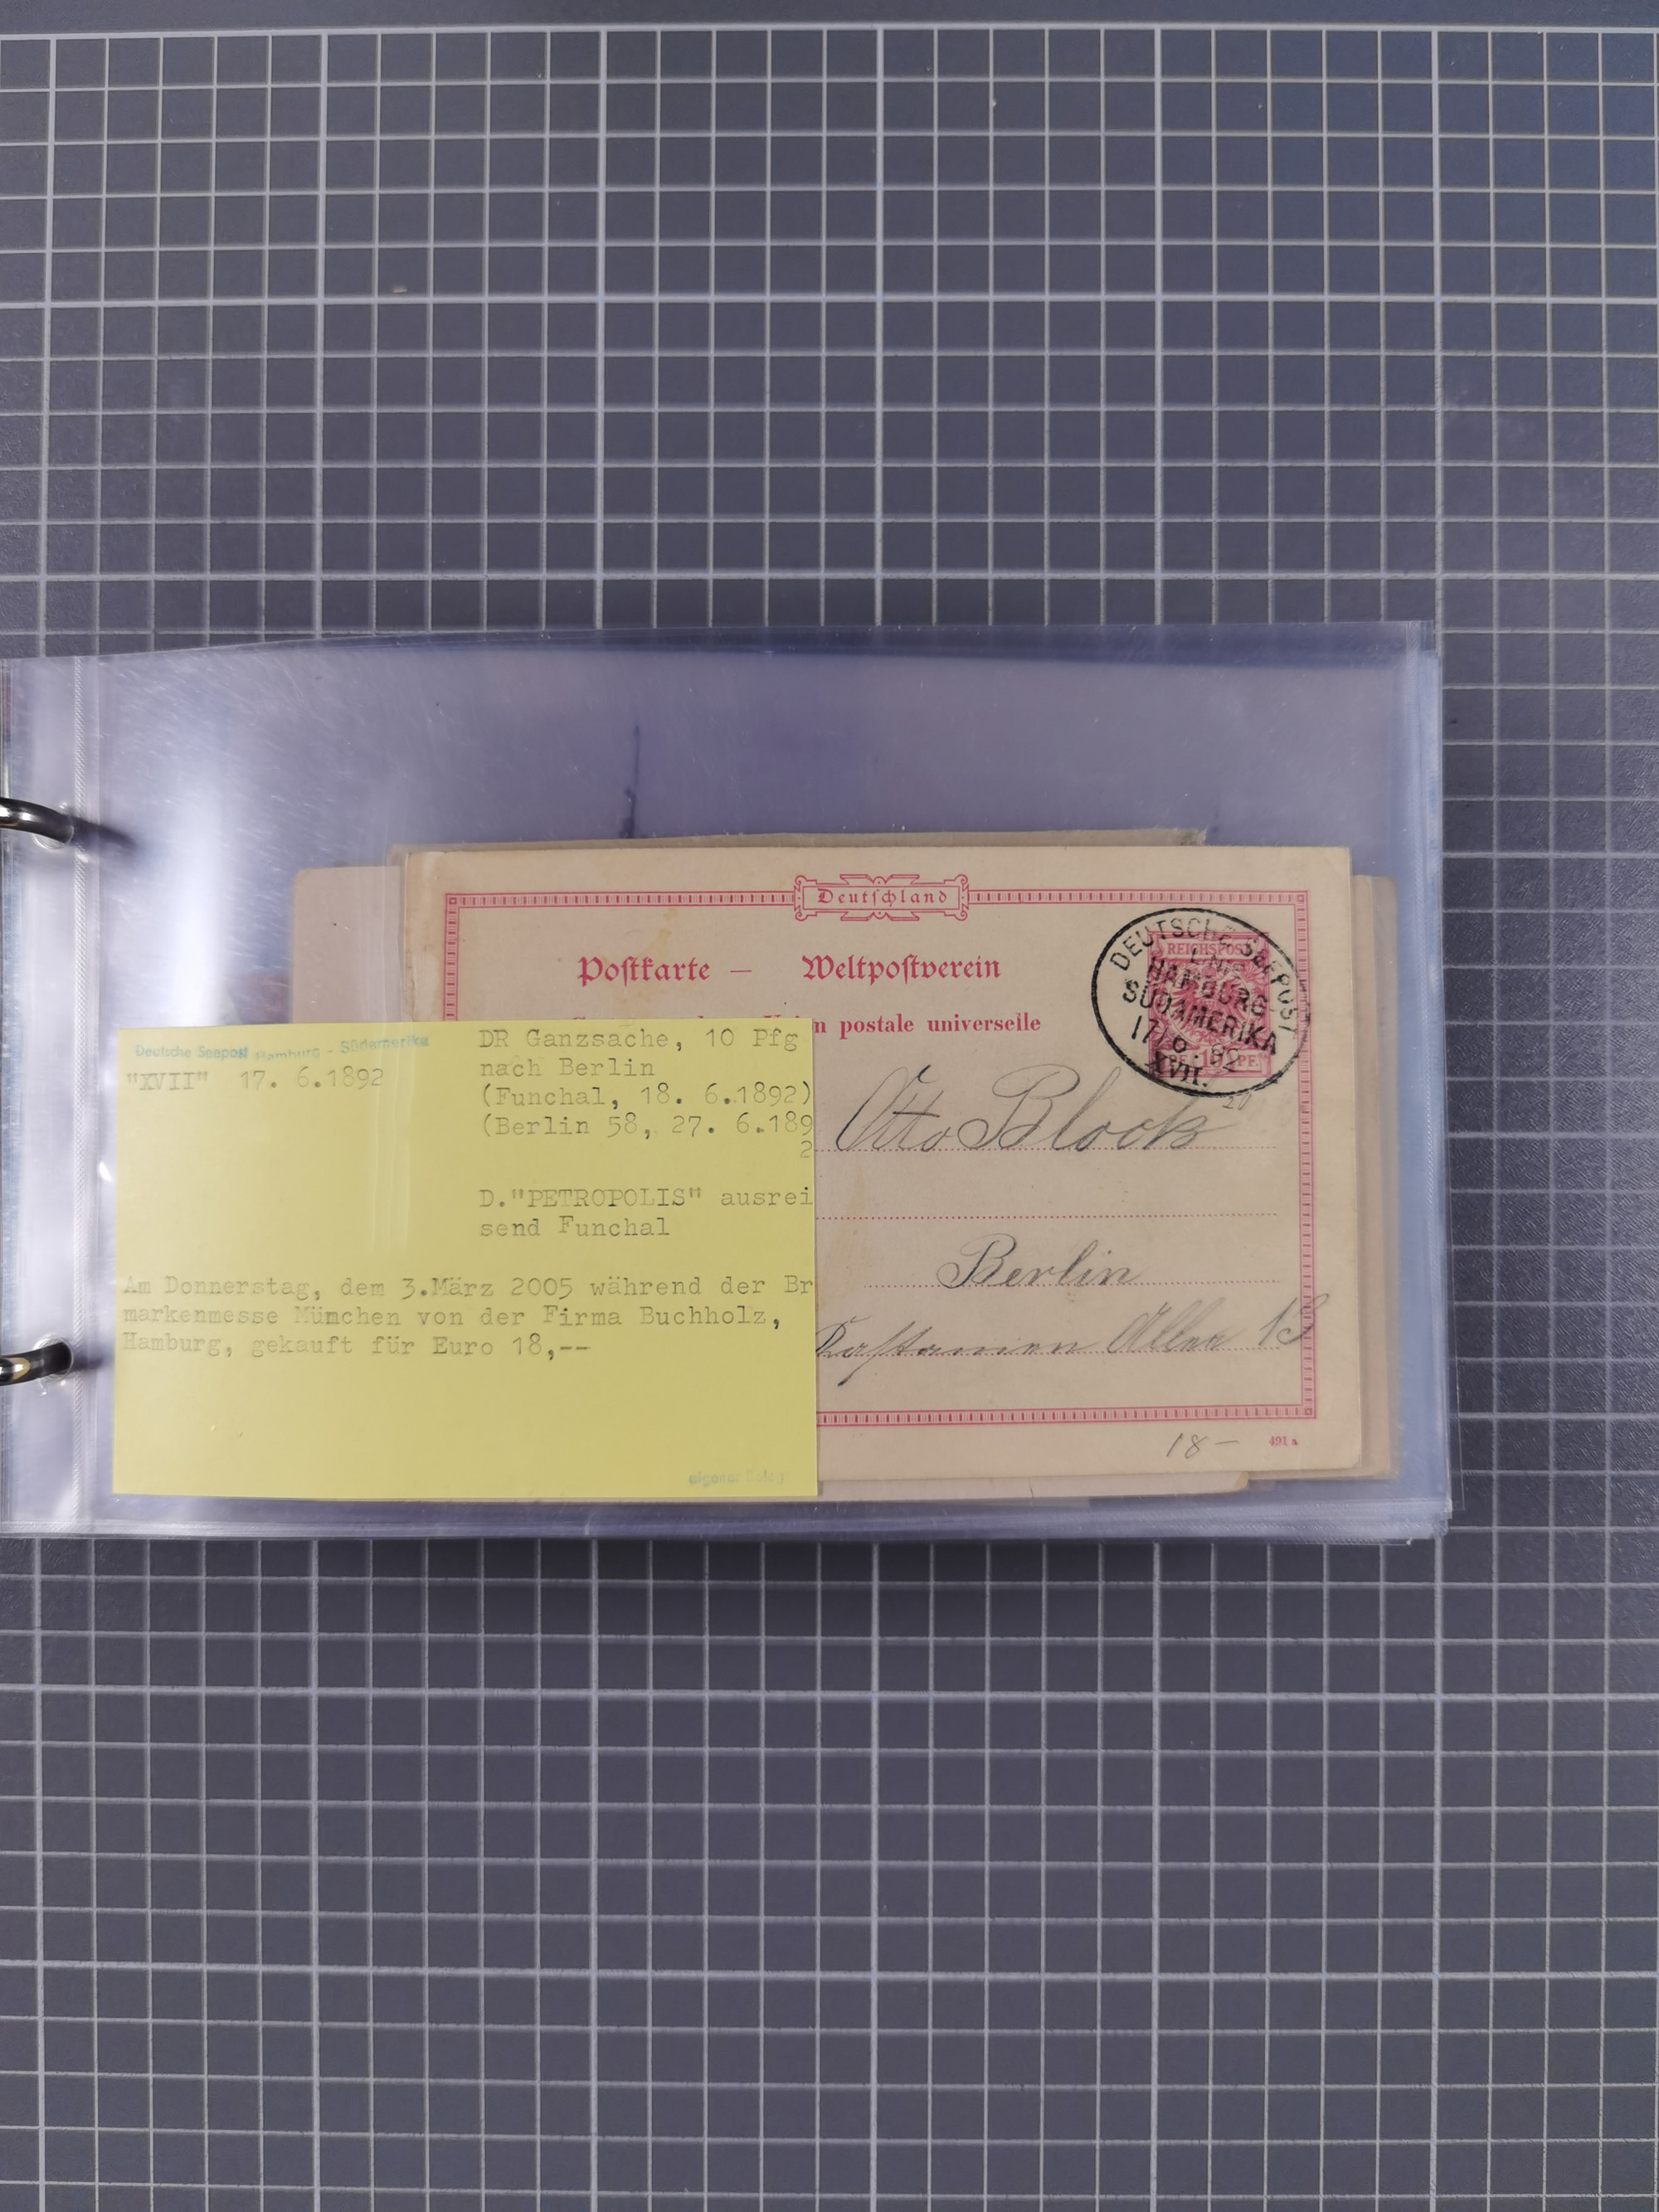 Deutschland
Postkarte — Weltpostverein
n postale universelle
DEUTSCHE SEEPOST
LINIE
HAMBURG-
SÜDAMERIKA
17/6.92
XVII.
REICHSPOST
Otto Block
Berlin
Kastanien Allee 13
18-
491 a
Deutsche Seepost Hamburg - Südamerika
"XVII" 17. 6.1892
DR Ganzsache, 10 Pfg
nach Berlin
(Funchal, 18. 6.1892)
(Berlin 58, 27. 6.189
2
D."PETROPOLIS" ausrei
send Funchal
Am Donnerstag, dem 3.März 2005 während der Br
markenmesse München von der Firma Buchholz,
Hamburg, gekauft für Euro 18,--
eigener Beleg